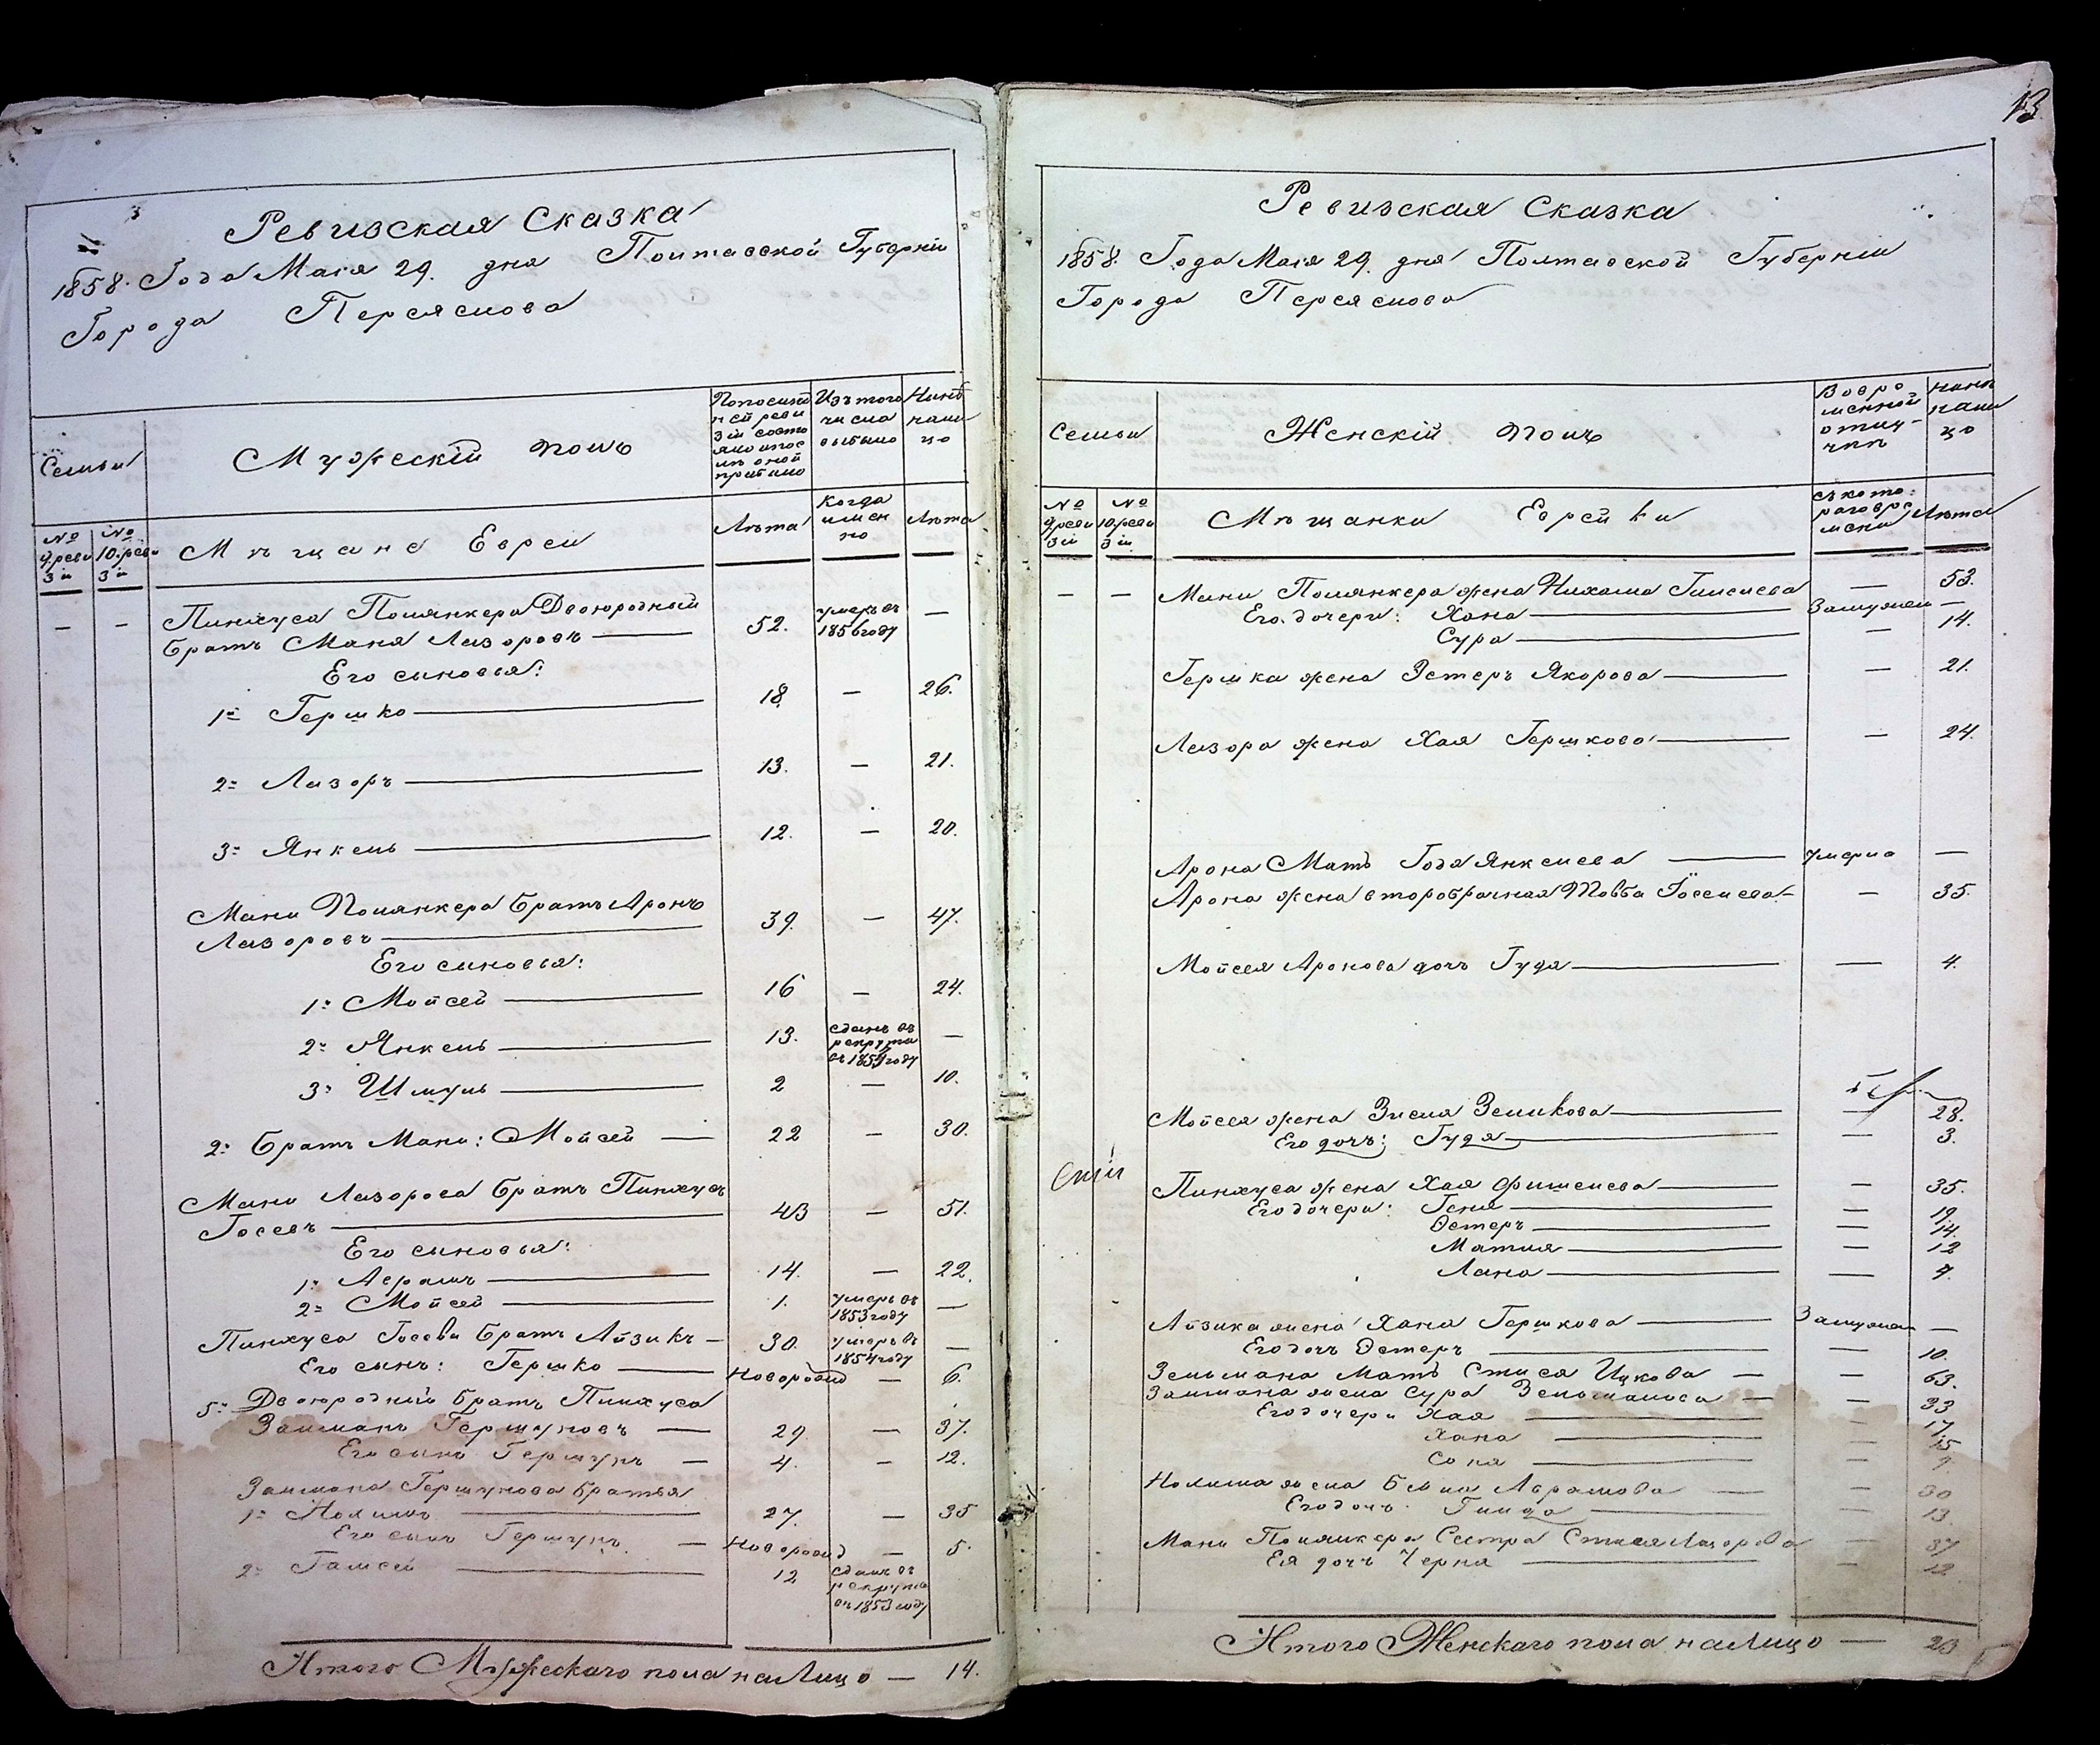 Ревизская Сказка
1858. Года Маія 29. дня Полтавской Губерніи
Города Переяслова
Семьи
Мужескій полъ
По последней ревизіи состояло и после оной прибыло
Изъ того числа выбыло
Ныне на лицо
№ 9. ревизіи
№ 10. ревизіи
Мѣщане Евреи
Лѣта
Когда именно
Лѣта
— — Пинхуса Полянкера Двоюродный
братъ Маня Лазоровъ — 52. умеръ въ 1856 году —
Его сыновья:
1й Гершко — 18. — 26.
2й Лазоръ — 13. — 21.
3й Янкель — 12. — 20.
Мани Полянкера братъ Аронъ
Лазоровъ — 39. — 47.
Его сыновья:
1й Мойсей — 16 — 24.
2й Янкель — 13. сданъ въ рекрута въ 1859 году —
3й Шмуль — 2 — 10.
2й братъ Мани: Мойсей — 22 — 30.
Мани Лазорова братъ Пинхусъ
Іосевъ — 43 — 51.
Его сыновья:
1й Аврамъ — 14. — 22.
2й Мойсей — 1. умеръ въ 1853 году —
Пинхуса Іосева братъ Айзикъ — 30. умеръ въ 1854 году —
Его сынъ: Гершко — Новорожд — 6.
5й Двоюродный братъ Пинхуса
Залманъ Гершуновъ — 29. — 37.
Его сынъ Гершунъ — 4. — 12.
Залмана Гершунова братья
1й Нохимъ — 27. — 35
Его сынъ Гершунъ — Новорожд — 5.
2й — 12 сданъ въ рекрута въ 1853 году
Итого Мужескаго пола на Лицо — 14.
13
Ревизская Сказка
1858. Года Маія 29. дня Полтавской Губерніи
Города Переяслова
Семьи
Женскій полъ
Во временной отлучкѣ
Нынѣ на лицо
№ 9. ревизіи
№ 10. ревизіи
Мѣщанки Еврейки
Съ котораго времени
Лѣта
— — Мани Полянкера жена Нихама — 53.
Его дочери: Хана — Замужем —
Сура — — 14.
Гершка жена Эстеръ — — 21.
Лазора жена Хая Гершкова — — 24.
Арона Мать Года Янкелева — умерла —
Арона жена второбрачная Товба Іоселева — — 35.
Мойсея Аронова дочь Гудя — — 4.
Мойсея жена Зисля Зеликова — — 28.
Его дочь: Гудя — — 3.
Пинхуса жена Хая Фишелева — — 35.
Его дочери: Геня — — 19.
Эстеръ — — 14.
Матля — — 12
Лана — — 7.
Айзика жена Хана Гершкова — Замужем —
Его дочь Эстеръ — — 10.
Зельмана Мать Стися Ицкова — — 63.
Залмана жена Сура — — 33
Его дочери Хая — — 17
Хана — — 15
Соня — — 9.
Нохима жена Бейла Аврамова — — 30
Его дочь — — 13.
Мани Полянкера Сестра Стися Лазорова — — 37
Ея дочь Черня — — 12
Итого Женскаго пола на Лицо — 23